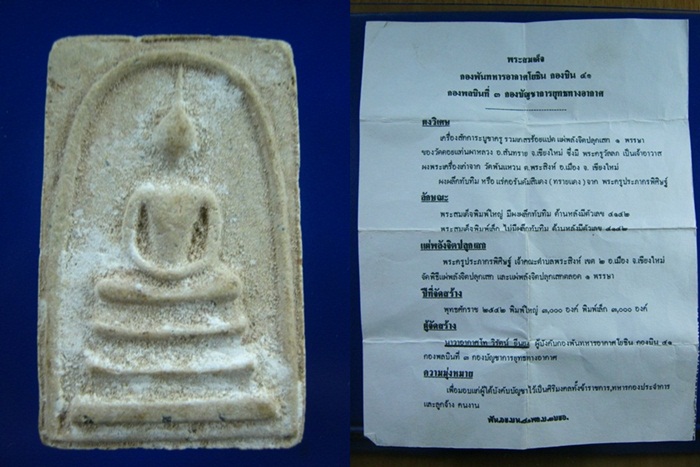 พระสมเด็จ
กองพันทหารอากาศโยธิน กองบิน ๔๑
กองพลบินที่ ๓ กองบัญชาการยุทธทางอากาศ
ผงวิเศษ
เครื่องสักการะบูชาครู รวมเกสรร้อยแปด แผ่พลังจิตปลุกเสก ๑ พรรษา
ของวัดดอยแท่นผาหลวง อ.สันทราย จ.เชียงใหม่ ซึ่งมี พระครูวัลลภ เป็นเจ้าอาวาส
ผงพระเครื่องเก่าจาก วัดพันแหวน ต.พระสิงห์ อ.เมือง จ. เชียงใหม่
ผงผลึกทับทิม หรือ แร่คอรันดัมสีแดง (ทรายแดง) จาก พระครูประภากรพิศิษฐ์
ลักษณะ
พระสมเด็จพิมพ์ใหญ่ มีผงผลึกทับทิม ด้านหลังมีตัวเลข ๔๑๔๒
พระสมเด็จพิมพ์เล็ก ไม่มีผลึกทับทิม ด้านหลังมีตัวเลข ๔๑๔๒
แผ่พลังจิตปลุกเสก
พระครูประภากรพิศิษฐ์ เจ้าคณะตำบลพระสิงห์ เขต ๒ อ.เมือง จ.เชียงใหม่
จัดพิธีแผ่พลังจิตปลุกเสก และแผ่พลังจิตปลุกเสกตลอด ๑ พรรษา
ปีที่จัดสร้าง
พุทธศักราช ๒๕๔๒ พิมพ์ใหญ่ ๓,๐๐๐ องค์ พิมพ์เล็ก ๓,๐๐๐ องค์
ผู้จัดสร้าง
นาวาอากาศโท ผู้บังคับกองพันทหารอากาศโยธิน กองบิน ๔๑
กองพลบินที่ ๓ กองบัญชาการยุทธทางอากาศ
ความมุ่งหมาย
เพื่อมอบแก่ผู้ใต้บังคับบัญชาไว้เป็นศิริมงคลทั้งข้าราชการ,ทหารกองประจำการ
และลูกจ้าง คนงาน